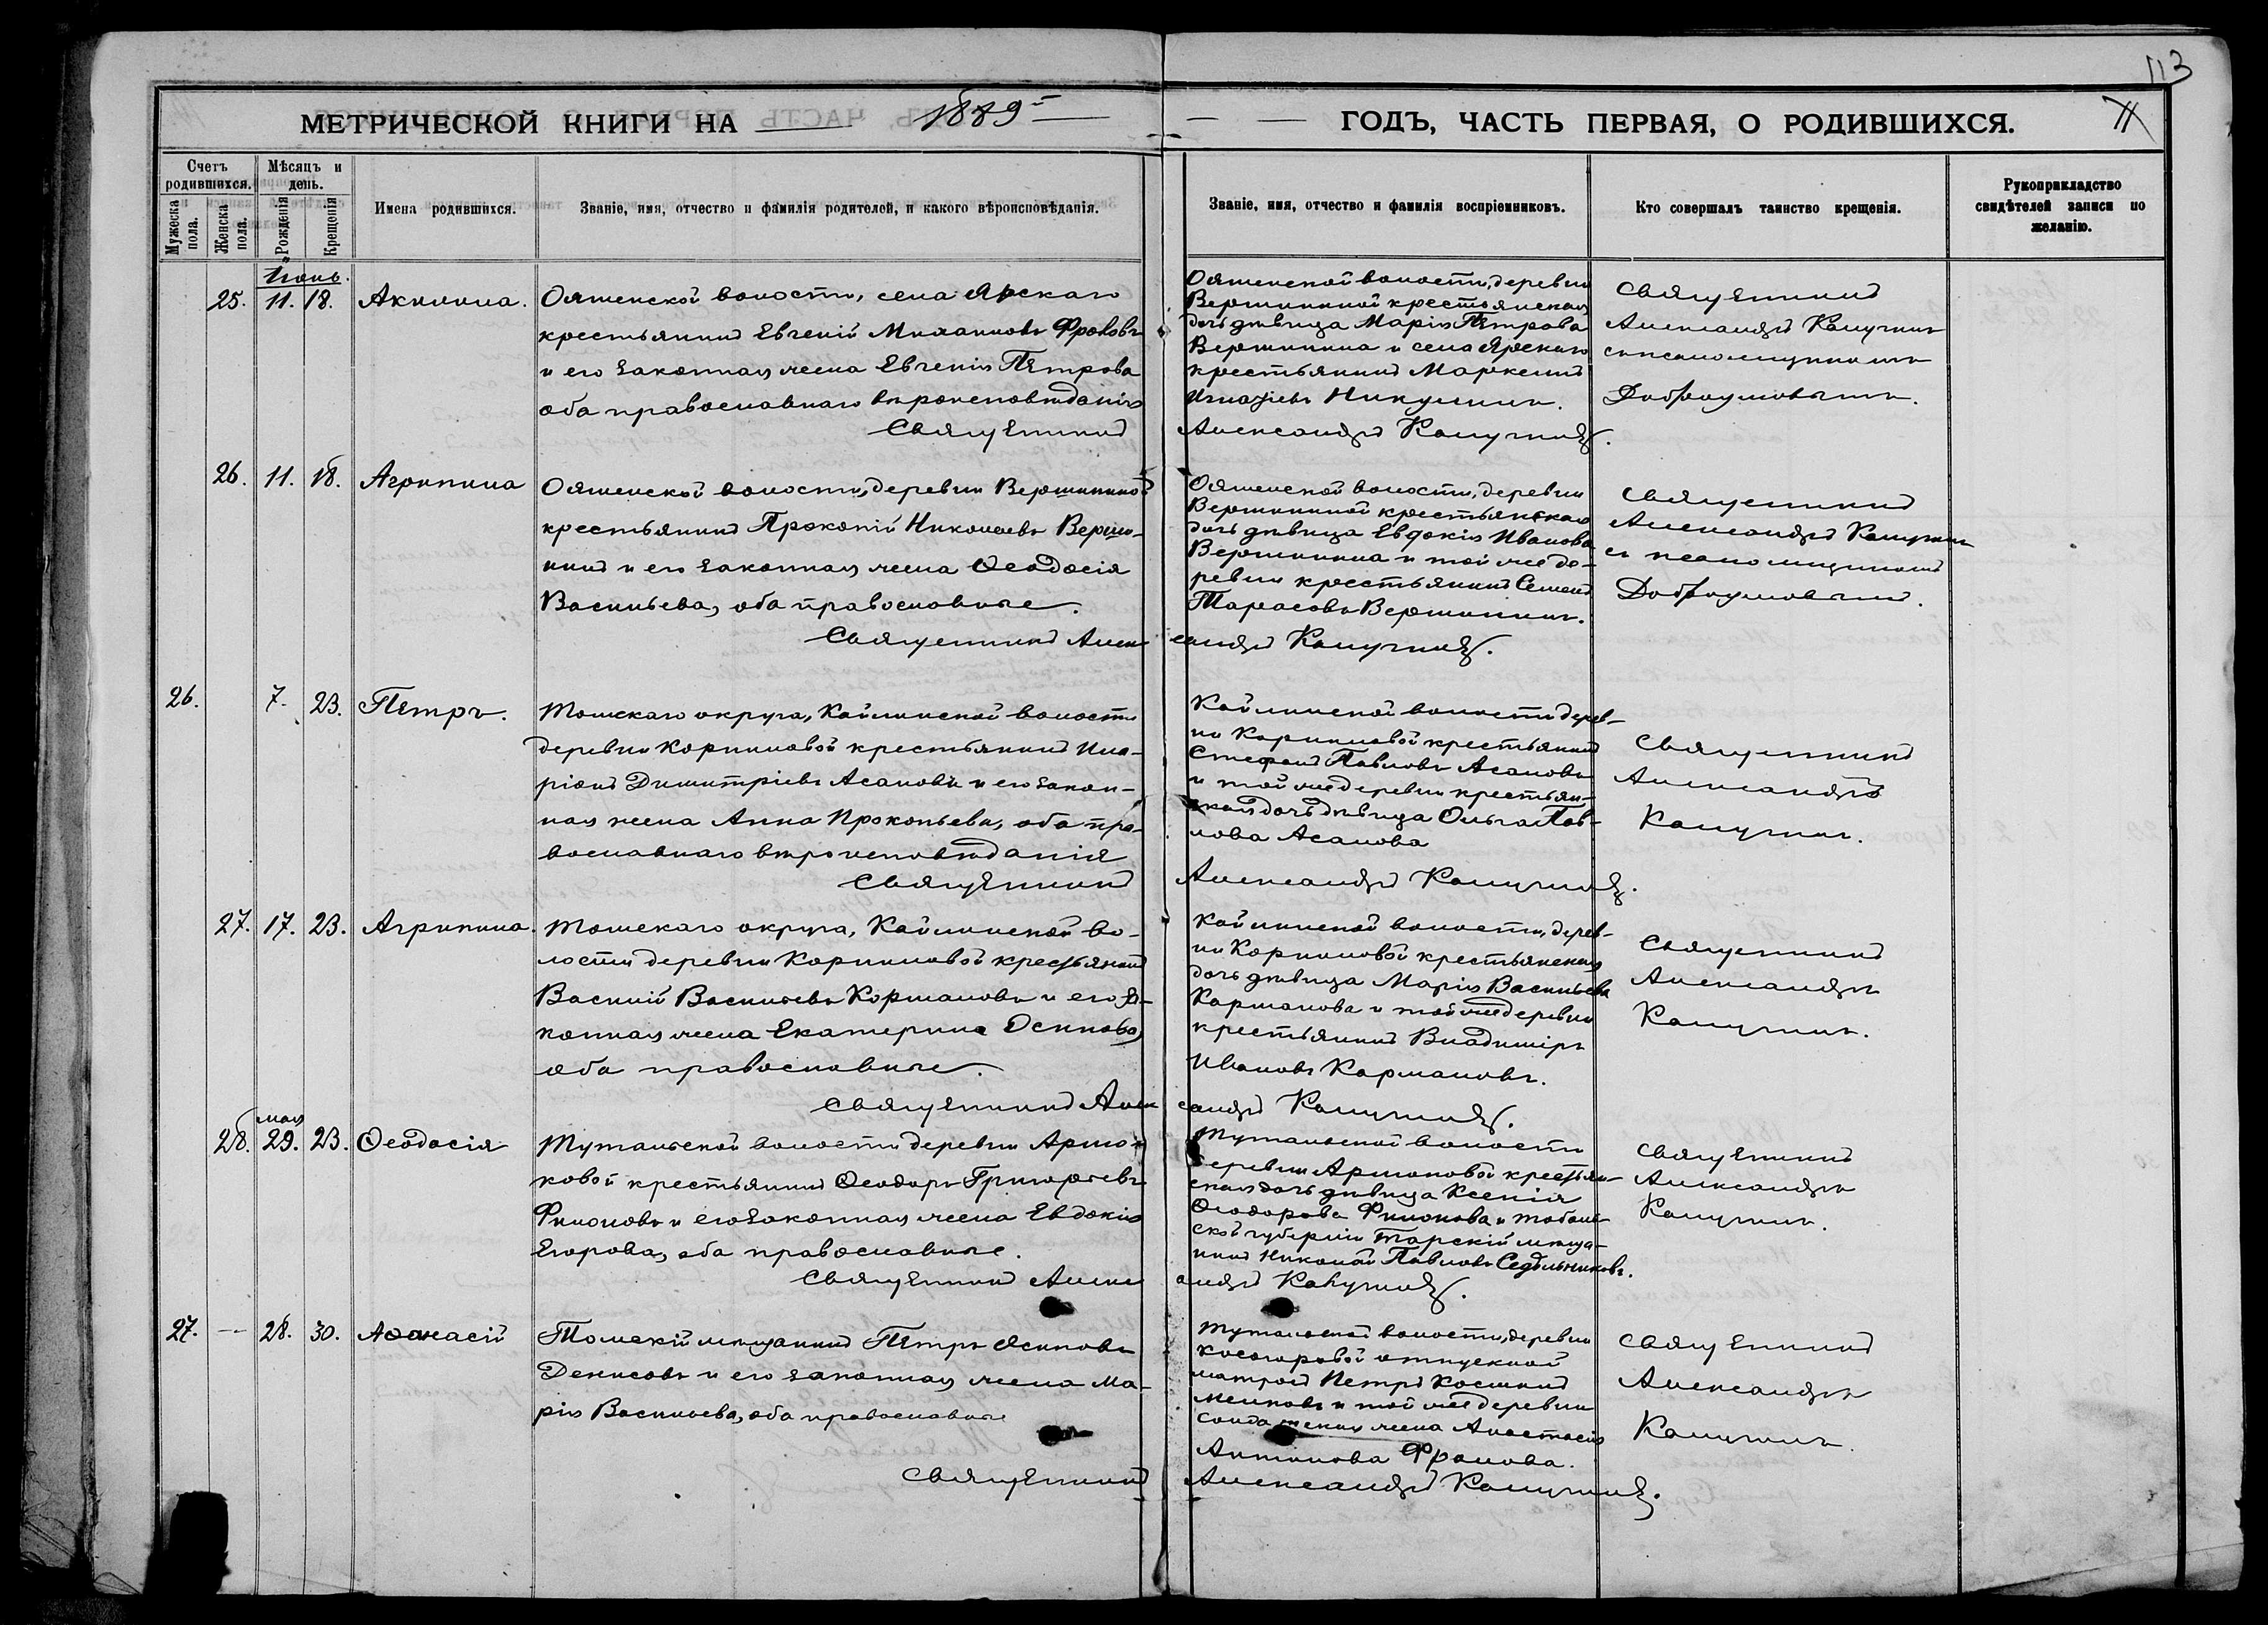 113
МЕТРИЧЕСКОЙ КНИГИ НА 1889 ГОДЪ, ЧАСТЬ ПЕРВАЯ, О РОДИВШИХСЯ.
Счетъ родившихся.
Мужеска пола.
Женска пола.
Мѣсяцъ и день.
Рожденія
Крещенія
Имена родившихся.
Званіе, имя, отчество и фамилія родителей, и какого вѣроисповѣданія.
Званіе, имя, отчество и фамилія воспріемниковъ.
Кто совершалъ таинство крещенія.
Рукоприкладство свидѣтелей записи по желанію.
Іюнь.
25. 11. 18. Акилина.
Ояшенской волости, села Ярскаго
крестьянинъ Евгеній Михаиловъ Фроловъ
и его законная жена Евгенія Петрова
оба православнаго вѣроисповѣданія
Ояшенской волости, деревни
Вершининой крестьянская
дочь дѣвица Марія Петрова
Вершинина и села Ярскаго
крестьянинъ Маркеллъ
Игнатіевъ Никулинъ.
Священникъ
Александръ Капустинъ
съ псаломщикомъ
Доброумовымъ.
Священникъ Александръ
26. 11. 18. Агрипина
Ояшенской волости, деревни Вершининой
крестьянинъ Прокопій Николаевъ Верши-
нинъ и его законная жена Ѳеодосія
Васильева, оба православные.
Ояшенской волости, деревни
Вершининой крестьянская
дочь дѣвица Евдокія Иванова
Вершинина и той же де-
ревни крестьянинъ Семенъ
Тарасовъ Вершининъ.
Священникъ
Александръ
съ псаломщикомъ
Доброумовымъ.
Священникъ Александръ
26. 7. 23. Петръ.
Томскаго округа, Кайлинской волости
деревни Корниловой крестьянинъ Ила-
ріонъ Димитріевъ Асановъ и его закон-
ная жена Анна Прокопьева, оба пра-
вославнаго вѣроисповѣданія
Кайлинской волости дерев-
ни Корниловой крестьянинъ
Стефанъ Павловъ Асановъ
и той же деревни крестьян-
ская дочь дѣвица Ольга Пав-
лова Асанова
Священникъ
Александръ
Священникъ
Александръ
27. 17. 23. Агрипина.
Томскаго округа, Кайлинской во-
лости деревни Корниловой крестьянинъ
Василій Васильевъ Кормановъ и его за-
конная жена Екатерина Осипова,
оба православные.
Кайлинской волости, дерев-
ни Корниловой крестьянская
дочь дѣвица Марія Васильева
Карманова и той же деревни
крестьянинъ Владиміръ
Ивановъ Кармановъ.
Священникъ
Александръ
Священникъ Александръ
мая
28. 29. 23. Ѳеодосія
Тутальской волости деревни
ковой крестьянинъ Ѳеодоръ Григорьевъ
Филоновъ и его законная жена Евдокія
Егорова, оба православные.
Тутальской волости
деревни крестьян-
ская дочь дѣвица Ксенія
Ѳеодорова Филонова и Тоболь-
ской губерніи Тарскій мѣща-
нинъ Николай Павловъ Седельниковъ.
Священникъ
Александръ
Священникъ Александръ
27. — 28. 30. Аѳанасій
Томскій мѣщанинъ Петръ Осиповъ
Денисовъ и его законная жена Ма-
рія Васильева, оба православные
Тутальской волости, деревни
Косогоровой отпускной
матросъ Петръ
и той же деревни
солдатская жена Анастасія
Антонова Фролова.
Священникъ
Александръ
Священникъ Александръ